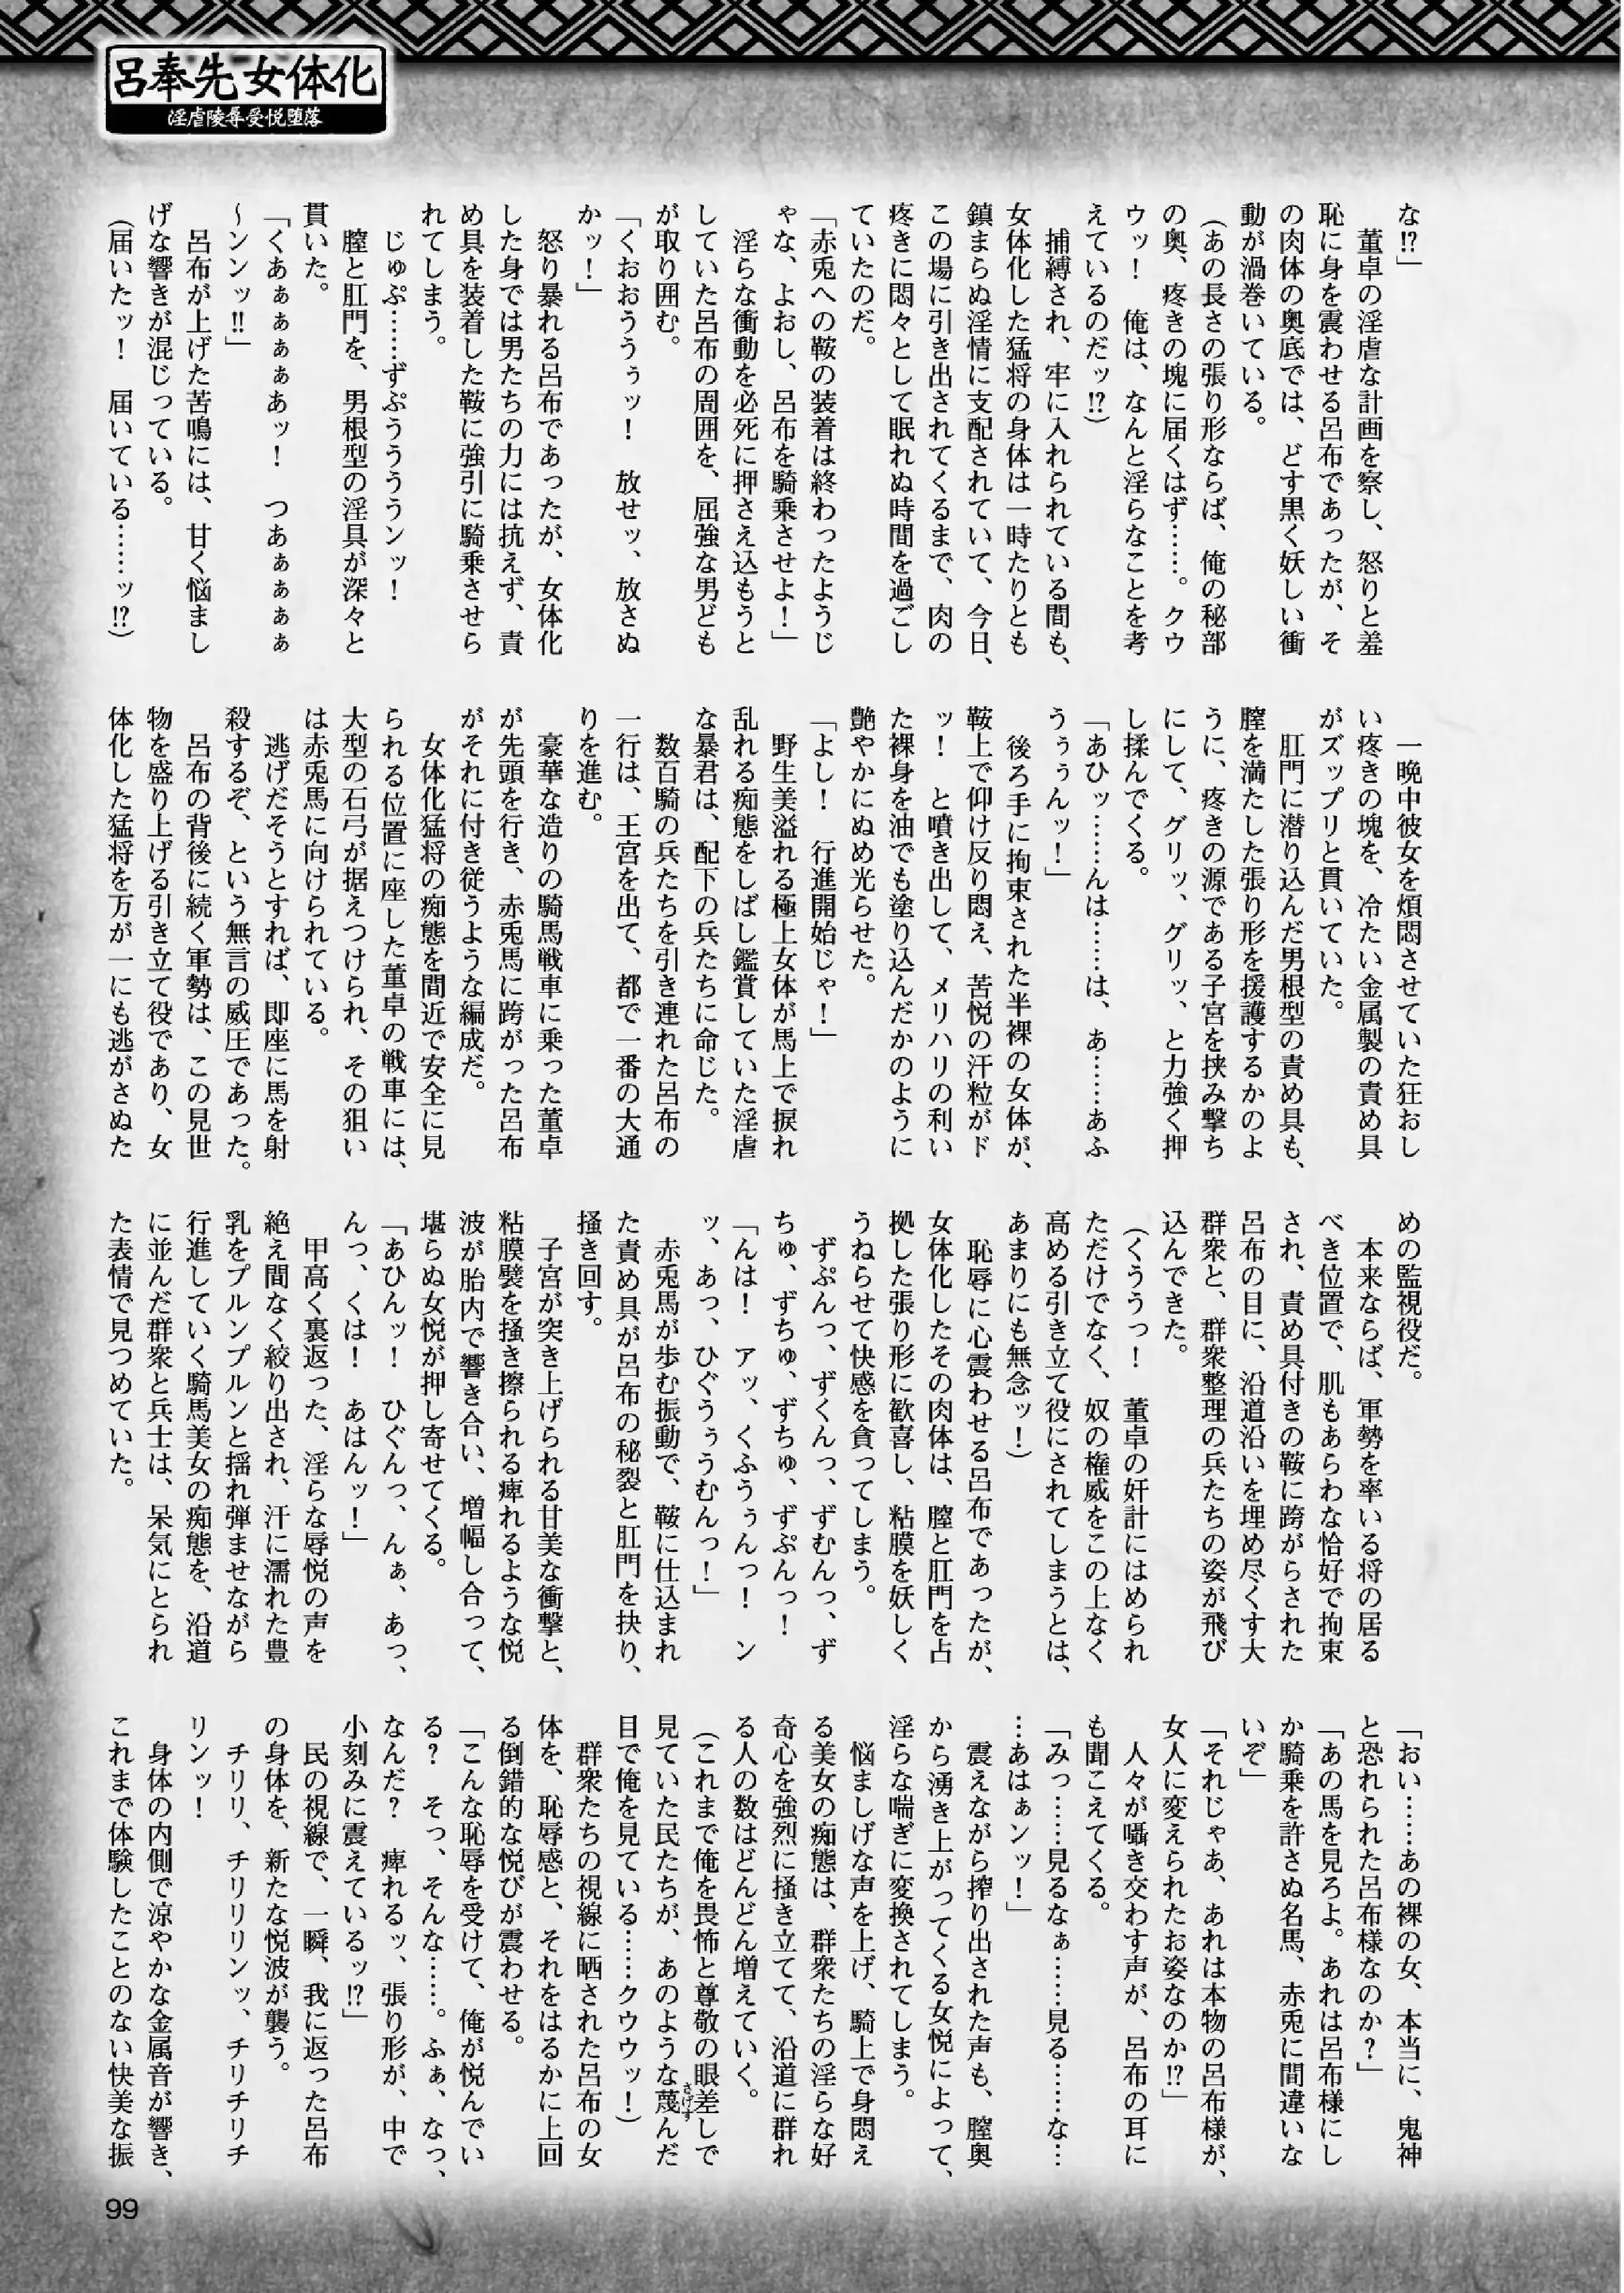 呂奉先女体化
淫虐陵辱受悦堕落
な!?」
　董卓の淫虐な計画を察し、怒りと羞
恥に身を震わせる呂布であったが、そ
の肉体の奥底では、どす黒く妖しい衝
動が渦巻いている。
（あの長さの張り形ならば、俺の秘部
の奥、疼きの塊に届くはず……。クウ
ウッ！　俺は、なんと淫らなことを考
えているのだッ!?）
　捕縛され、牢に入れられている間も、
女体化した猛将の身体は一時たりとも
鎮まらぬ淫情に支配されていて、今日、
この場に引き出されてくるまで、肉の
疼きに悶々として眠れぬ時間を過ごし
ていたのだ。
「赤兎への鞍の装着は終わったようじ
ゃな、よおし、呂布を騎乗させよ！」
　淫らな衝動を必死に押さえ込もうと
していた呂布の周囲を、屈強な男ども
が取り囲む。
「くおおうぅッ！　放せッ、放さぬ
かッ！」
　怒り暴れる呂布であったが、女体化
した身では男たちの力には抗えず、責
め具を装着した鞍に強引に騎乗させら
れてしまう。
　じゅぷ……ずぷううううンッ！
　膣と肛門を、男根型の淫具が深々と
貫いた。
「くあぁぁぁぁあッ！　つあぁぁぁぁ
～ンンッ!!」
　呂布が上げた苦鳴には、甘く悩まし
げな響きが混じっている。
（届いたッ！　届いている……ッ!?）
　一晩中彼女を煩悶させていた狂おし
い疼きの塊を、冷たい金属製の責め具
がズップリと貫いていた。
　肛門に潜り込んだ男根型の責め具も、
膣を満たした張り形を援護するかのよ
うに、疼きの源である子宮を挟み撃ち
にして、グリッ、グリッ、と力強く押
し揉んでくる。
「あひッ……んは……は、あ……あふ
うぅぅんッ！」
　後ろ手に拘束された半裸の女体が、
鞍上で仰け反り悶え、苦悦の汗粒がド
ッ！　と噴き出して、メリハリの利い
た裸身を油でも塗り込んだかのように
艶やかにぬめ光らせた。
「よし！　行進開始じゃ！」
　野生美溢れる極上女体が馬上で捩れ
乱れる痴態をしばし鑑賞していた淫虐
な暴君は、配下の兵たちに命じた。
　数百騎の兵たちを引き連れた呂布の
一行は、王宮を出て、都で一番の大通
りを進む。
　豪華な造りの騎馬戦車に乗った董卓
が先頭を行き、赤兎馬に跨がった呂布
がそれに付き従うような編成だ。
　女体化猛将の痴態を間近で安全に見
られる位置に座した董卓の戦車には、
大型の石弓が据えつけられ、その狙い
は赤兎馬に向けられている。
　逃げだそうとすれば、即座に馬を射
殺するぞ、という無言の威圧であった。
　呂布の背後に続く軍勢は、この見世
物を盛り上げる引き立て役であり、女
体化した猛将を万が一にも逃がさぬた
めの監視役だ。
　本来ならば、軍勢を率いる将の居る
べき位置で、肌もあらわな恰好で拘束
され、責め具付きの鞍に跨がらされた
呂布の目に、沿道沿いを埋め尽くす大
群衆と、群衆整理の兵たちの姿が飛び
込んできた。
（くううっ！　董卓の奸計にはめられ
ただけでなく、奴の権威をこの上なく
高める引き立て役にされてしまうとは、
あまりにも無念ッ！）
　恥辱に心震わせる呂布であったが、
女体化したその肉体は、膣と肛門を占
拠した張り形に歓喜し、粘膜を妖しく
うねらせて快感を貪ってしまう。
　ずぷんっ、ずくんっ、ずむんっ、ず
ちゅ、ずちゅ、ずちゅ、ずぷんっ！
「んは！　アッ、くふうぅんっ！　ン
ッ、あっ、ひぐうぅうむんっ！」
　赤兎馬が歩む振動で、鞍に仕込まれ
た責め具が呂布の秘裂と肛門を抉り、
掻き回す。
　子宮が突き上げられる甘美な衝撃と、
粘膜襞を掻き擦られる痺れるような悦
波が胎内で響き合い、増幅し合って、
堪らぬ女悦が押し寄せてくる。
「あひんッ！　ひぐんっ、んぁ、あっ、
んっ、くは！　あはんッ！」
　甲高く裏返った、淫らな辱悦の声を
絶え間なく絞り出され、汗に濡れた豊
乳をプルンプルンと揺れ弾ませながら
行進していく騎馬美女の痴態を、沿道
に並んだ群衆と兵士は、呆気にとられ
た表情で見つめていた。
「おい……あの裸の女、本当に、鬼神
と恐れられた呂布様なのか？」
「あの馬を見ろよ。あれは呂布様にし
か騎乗を許さぬ名馬、赤兎に間違いな
いぞ」
「それじゃあ、あれは本物の呂布様が、
女人に変えられたお姿なのか!?」
　人々が囁き交わす声が、呂布の耳に
も聞こえてくる。
「みっ……見るなぁ……見る……な…
…あはぁンッ！」
　震えながら搾り出された声も、膣奥
から湧き上がってくる女悦によって、
淫らな喘ぎに変換されてしまう。
　悩ましげな声を上げ、騎上で身悶え
る美女の痴態は、群衆たちの淫らな好
奇心を強烈に掻き立てて、沿道に群れ
る人の数はどんどん増えていく。
（これまで俺を畏怖と尊敬の眼差しで
見ていた民たちが、あのような蔑んだ
さげす
目で俺を見ている……クウウッ！）
　群衆たちの視線に晒された呂布の女
体を、恥辱感と、それをはるかに上回
る倒錯的な悦びが震わせる。
「こんな恥辱を受けて、俺が悦んでい
る？　そっ、そんな……。ふぁ、なっ、
なんだ？　痺れるッ、張り形が、中で
小刻みに震えているッ!?」
　民の視線で、一瞬、我に返った呂布
の身体を、新たな悦波が襲う。
　チリリ、チリリリンッ、チリチリチ
リンッ！
　身体の内側で涼やかな金属音が響き、
これまで体験したことのない快美な振
99